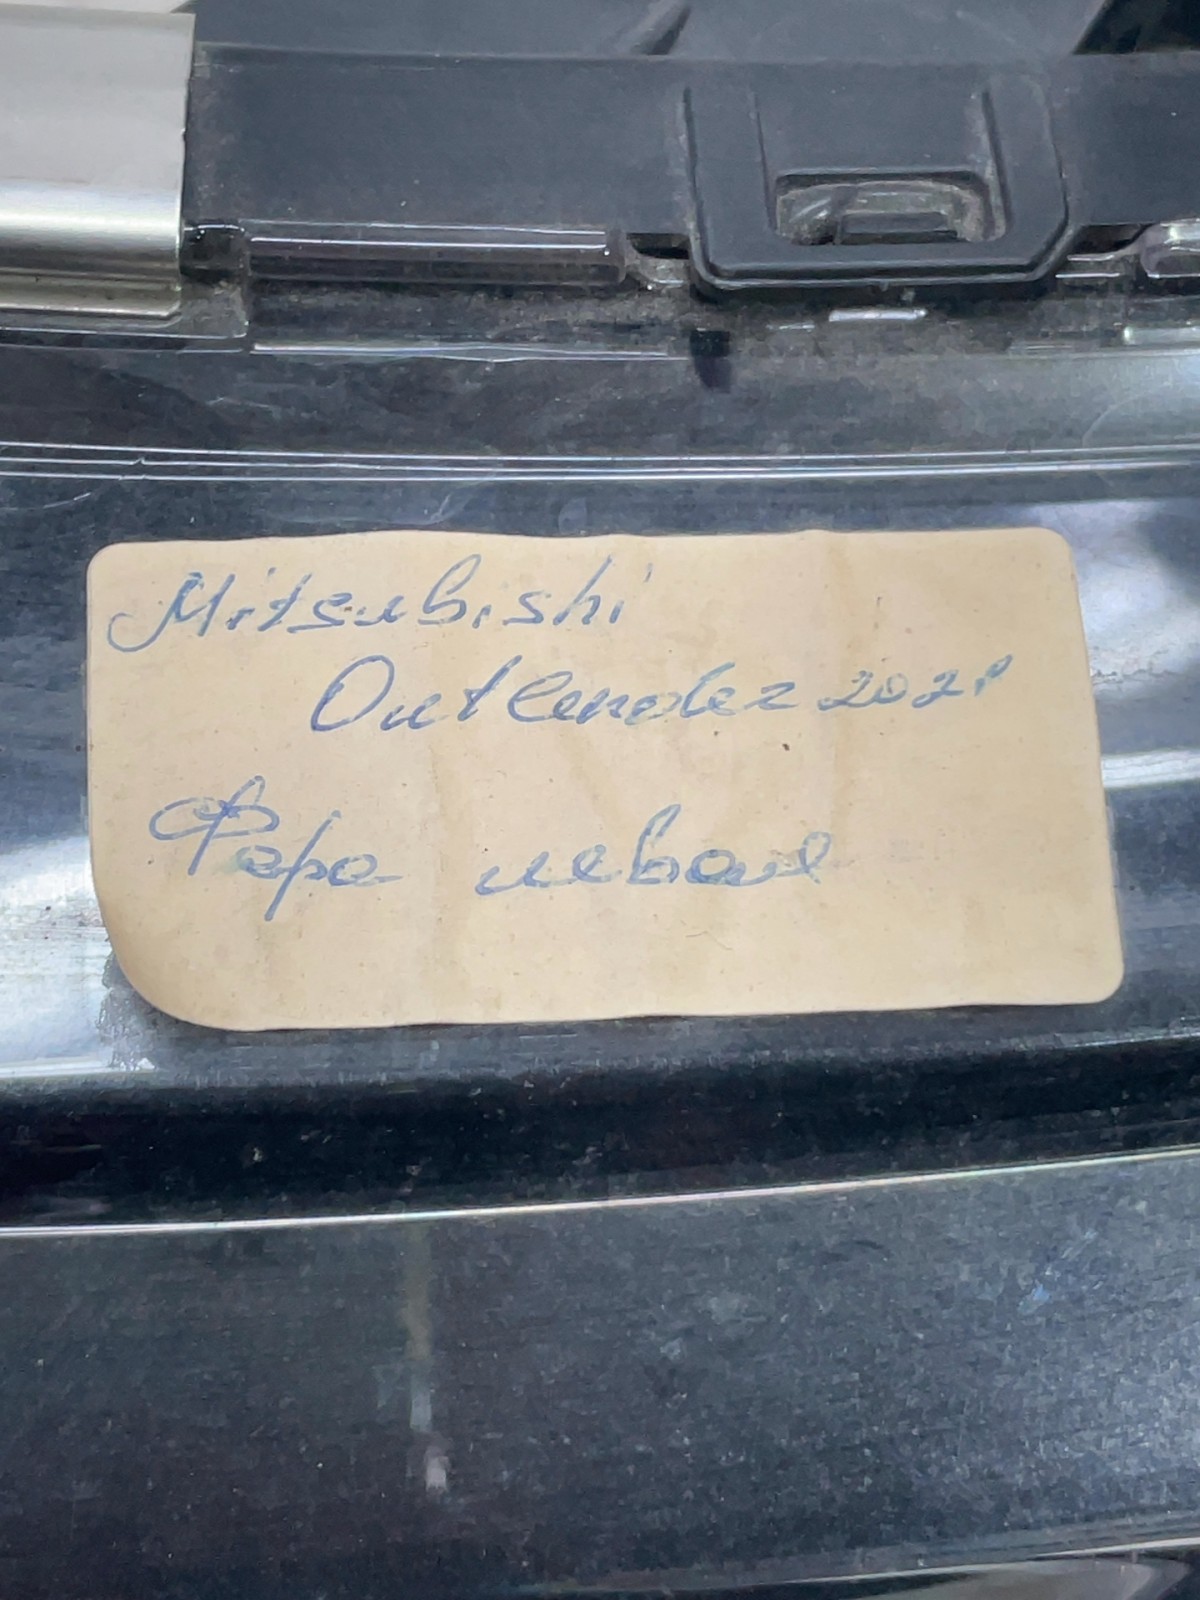 Mitsubishi
Outlender 2021
Фара левая